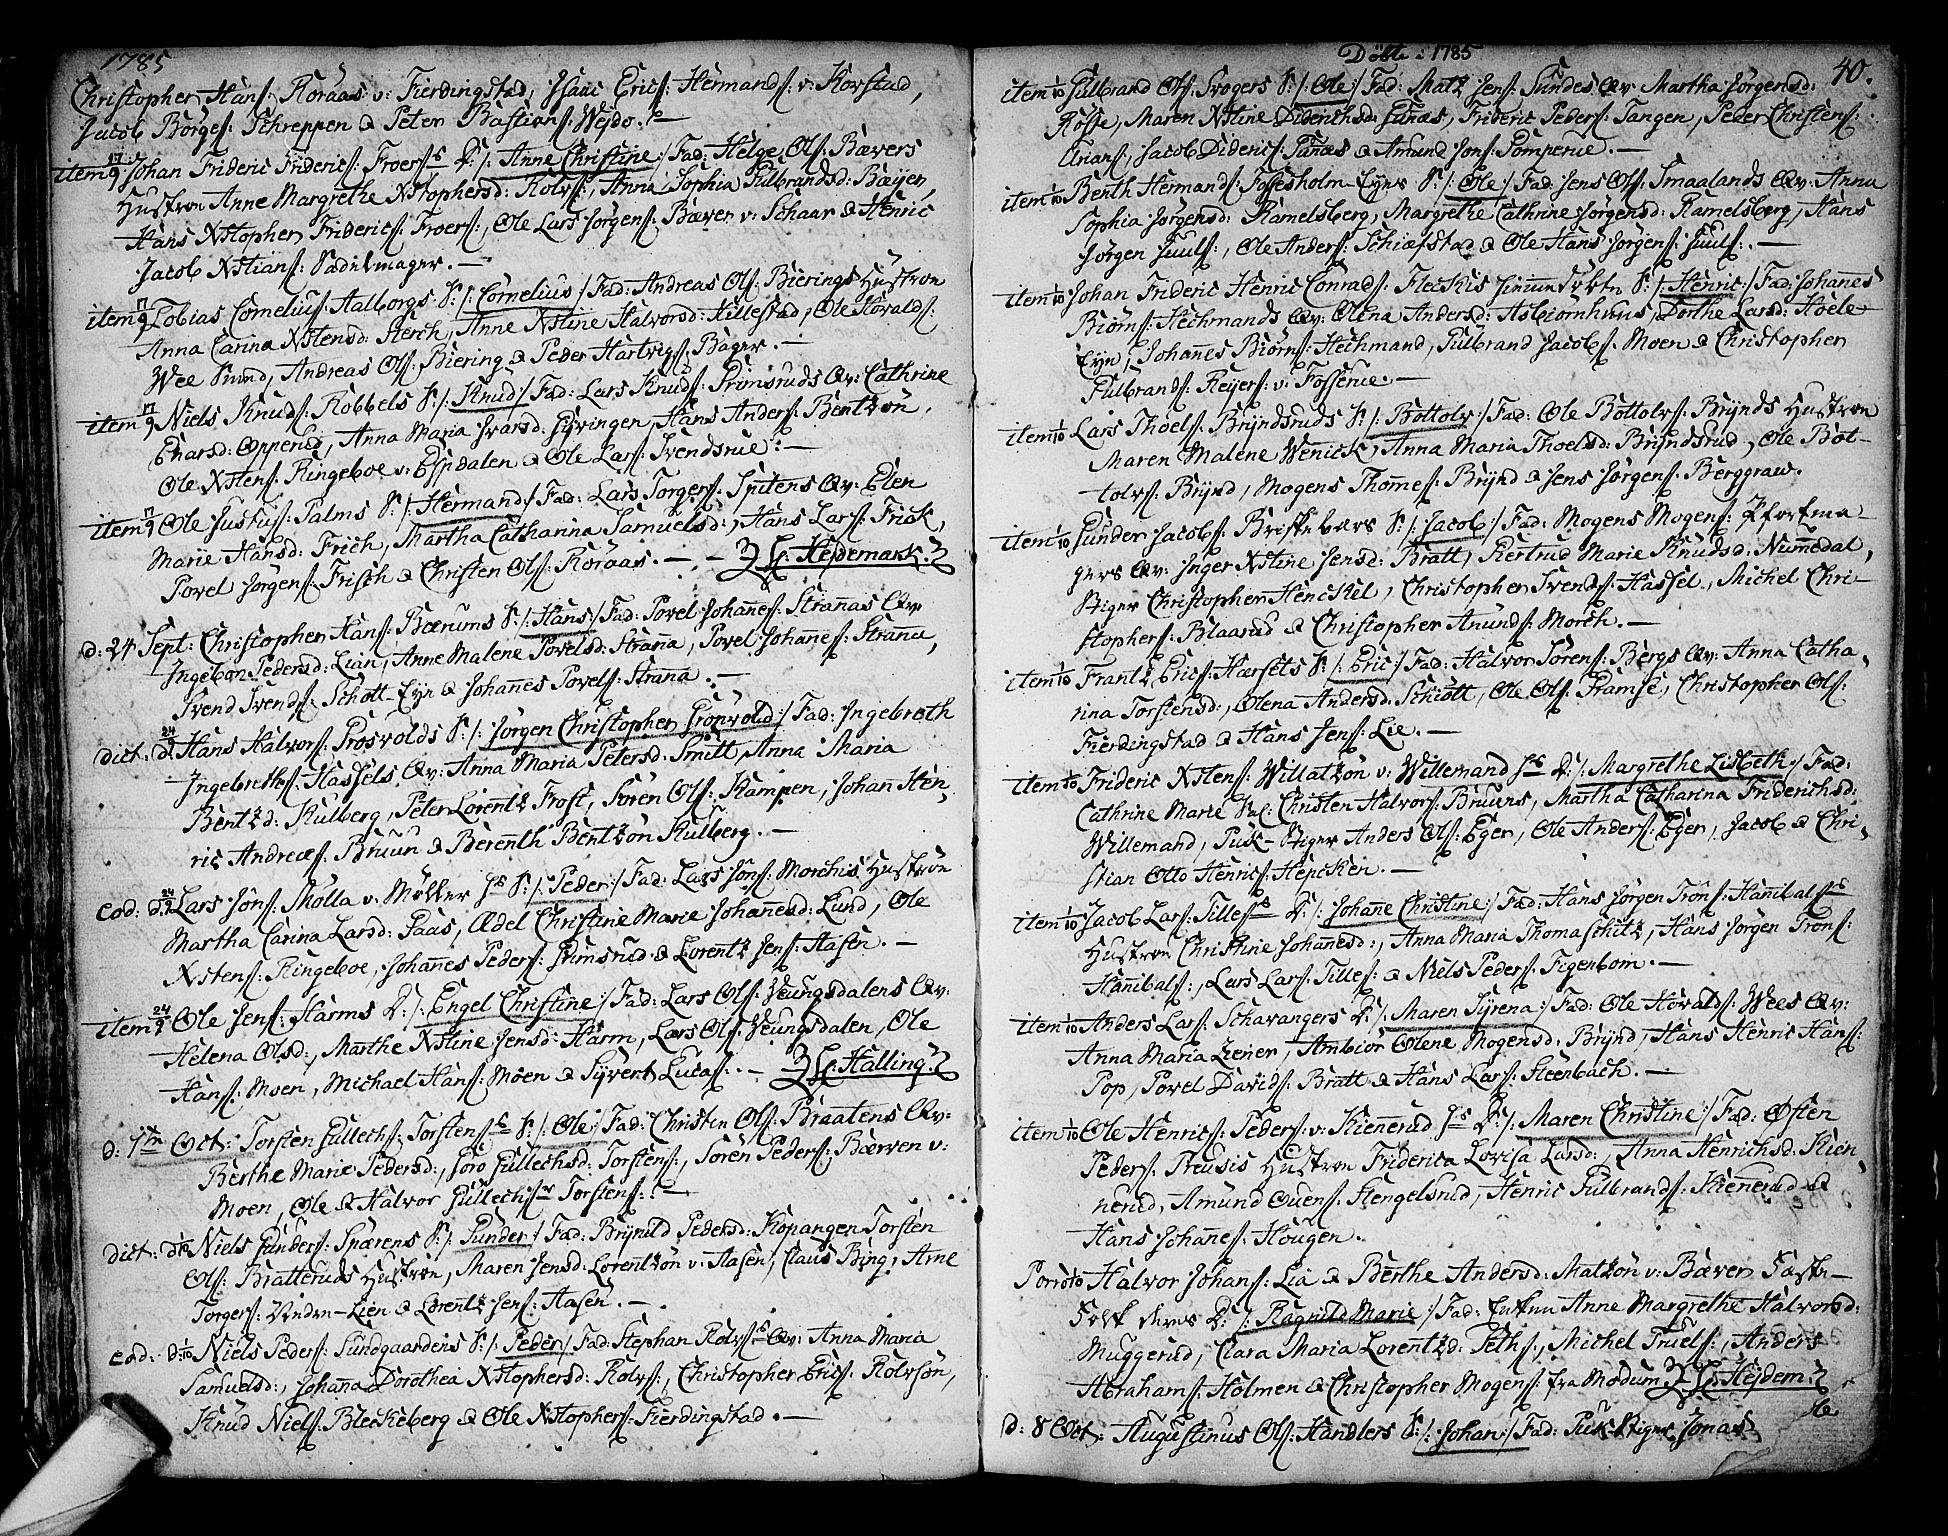 1785
Christopher Hans: Roraas v: Fierdingstad, Isaac Erics: Hermands: v: Korstad,
Jacob Börges: Schreppen & Peter Bastians: Wejdo.
item 17/9 Johan Frideric Friderics: Froers: D: /: Anne Christine :/ Fad: Helge Ols: Bævers
Hustroe Anne Margrethe Xstophersd: Rolvs:, Anna Sophia Gulbrandsd: Bæyer,
Hans Xstopher Friderics: Froers:, Ole Lars Jörgens: Bæver v: Schaar & Henric
Jacob Xstians: Sadelmager. —
item 17/9 Tobias Cornelius Aalborgs S: /: Cornelius :/ Fad: Andreas Ols: Bierings Hustroe
Anna Carina Xstensd: Lerch, Anne Xstine Halvorsd: Killestad, Ole Howalds:
Wee Smed, Andreas Ols: Biering & Peder Hartvigs: Bager. —
item 17/9 Niels Knuds: Robbels S: /: Knud :/ Fad: Lars Knuds: Grimsruds Qv: Cathrine
Evarsd: Opperud, Anna Maria Ivarsd: Gyvingen, Hans Anders: Bentzön,
Ole Xstens: Ringeboe v: Espdalen & Ole Lars: Svendsrue: —
item 17/9 Ole Justus: Palms S: /: Hermand :/ Fad: Lars Torgers: Spitens Qv: Elen
Marie Hansd: Frich, Martha Catharina Samuelsd:, Hans Lars: Frick,
Povel Jörgens: Frisch & Christen Ols: Roraas. — Hejdemark.
d: 24 Sept: Christopher Hans: Bærums S: /: Hans :/ Fad: Povel Johans: Strannas Qv:
Ingebor Pedersd: Lian, Anne Malene Povelsd: Stranna, Povel Johanes: Stranna,
Svend Svends: Schott-Eyn & Johannes Povels: Strana. —
dict: d: 24/9 Hans Halvors: Grosvolds S: /: Jörgen Christopher Grönvold :/ Fad: Ingebreth
Ingebreths: Hassels Qv: Anna Maria Petersd: Smitt, Anna Maria
Bentzd: Kulberg, Peter Lorentz Frost, Sören Ols: Kampen, Johan Hen-
ric Andreæs: Bruun & Berenth Bentzön Kulberg. —
eod: d: 24/9 Lars Jöns: Molla v: Möller S: /: Peder :/ Fad: Lars Jöns: Morchis Hustroe
Martha Carina Larsd: Paas, Ædel Christine Marie Johanesd: Lund, Ole
Xstens: Ringeboe, Johannes Peders: Grimsrud & Lorentz Jens: Aasen. —
item 24/9 Ole Jens: Harms D: /: Engel Christine :/ Fad: Lars Ols: Veungsdalens Qv:
Helena Olsd:, Marthe Xstine Jensd: Harm, Lars Ols: Veungsdalen, Ole
Hans: Moen, Michael Hans: Moen & Syvert Lucas: — Halling.
d: 1ste Oct: Torsten Gullechs: Torstens: S: /: Ole :/ Fad: Christen Ols: Braatens Qv:
Berthe Marie Pedersd:, Goro Gullechsd: Torstens:, Sören Peders: Bæwer v:
Moen, Ole & Halvor Gullechs: Torstens: —
dict: d: 1/10 Niels Gunders: Spærens S: /: Gunder :/ Fad: Brynild Pedersd: Kopangen Torsten
Ols: Bratteruds Hustroe, Maren Jensd: Lorentzön v: Aasen, Claus Bing, Arne
Torgers: Lien & Lorentz Jens: Aasen. —
eod: d: 1/10 Niels Peders: Sundgaardens S: /: Peder :/ Fad: Stephan Rolvs: Qv: Anna Maria
Samuelsd:, Johanna Dorothea Xstophersd: Rolvs:, Christopher Erics: Rolvsön,
Knud Niels: Bleckeberg & Ole Xstophers: Fierdingstad. —
Döbte i 1785
40.
item 1/10 Gulbrand Ols: Svogers S: /: Ole :/ Fad: Matz Jens: Sundes Qv: Martha Jörgensd:
Rösse, Maren Xstine Diderichsd: Funæs, Frideric Peders: Tangen, Peder Christens:
Urians:, Jacob Dideric: Funæs & Amund Jons: Pomperue. —
item 1/10 Benth Hermands: Fossesholm-Eyes S: /: Ole :/ Fad: Jens Ols: Smaalands Qv: Anna
Sophia Jörgensd: Ramelsberg, Margrethe Cathrine Jörgensd: Ramelsberg, Hans
Jörgen Juuls:, Ole Anders: Schiefstad & Ole Hans Jörgens: Juuls: —
item 1/10 Johan Frideric Henric Conrads: Fleckis S: /: Henric :/ Fad: Johannes
Biörns: Hechmands Qv: Olena Andersd: Asbiornhuus, Dorthe Larsd: Hoele-
Eyn, Johannes Biörns: Hechmand, Gulbrand Jacobs: Moen & Christopher
Gulbrands: Reyers: v: Fosserue: —
item 1/10 Lars Thoels: Bryndsruds S: /: Bottolv :/ Fad: Ole Bottolvs: Brynds Hustroe
Maren Malene Wenick, Anna Maria Thoelsd: Bryndsrud, Ole Bot-
tolvs: Brynd, Mogens Thomes: Brynd & Jens Jörgens: Berggraw.
item 1/10 Gunder Jacobs: Briskebærs S: /: Jacob :/ Fad: Mogens Mogens:
gers Qv: Inger Xstine Jensd: Bratt, Giertrud Marie Knudsd: Numedal,
Stiger Christopher Henckel, Christopher Svends: Hassel, Michel Chri-
stophers: Blaarud & Christopher Anunds: Morch. —
item 1/10 Frantz Erics: Hærsets S: /: Eric :/ Fad: Halvor Sörens: Bergs Qv: Anna Catha-
rina Torstensd:, Olena Andersd: Schiött, Ole Ols: Gramse, Christopher Ols:
Fierdingstad & Hans Jens: Lie. —
item 1/10 Frideric Xstens: Willatzön v: Willemand S: D: /: Margrethe Lisbeth :/ Fad:
Cathrine Marie Sal: Christen Halvors: Bruuns, Martha Catharina Friderichsd:
Willemand, Puk-Stiger Anders Ols: Eger, Ole Anders: Eger, Jacob & Chri-
stian Otto Henrics: Hencken. —
item 1/10 Jacob Lars: Tilles: D: /: Johane Christine :/ Fad: Hans Jörgen Trons: Hanibals:
Hustroe Christine Johanesd:, Anna Maria Thomaschitz, Hans Jörgen Trons:
Hanibals:, Lars Lars: Tilles: & Niels Peders: Figenbom. —
item 1/10 Anders Lars: Schavangers D: /: Maren Syrena :/ Fad: Ole Howalds: Wees Qv:
Anna Maria Zeier, Ambiör Olene Mogensd: Brynd, Hans Henric Hans:
Pop, Povel Davids: Bratt & Hans Lars: Steenbach. —
item 1/10 Ole Henrics: Peders: v: Kienerud S: D: /: Maren Christine :/ Fad: Osten
Peders: Preusis Hustroe Friderica Lovisa Larsd:, Anna Henrichsd: Kien-
nerud, Amund Ouens: Stengelsrud, Henric Gulbrands: Kienerud &
Hans Johanes: Hougen.
Porro 1/10 Halvor Johans: Lia & Berthe Andersd: Matzön v: Bæver Fæste-
Folk deres D: /: Ragnild Marie :/ Fad: Enken Anne Margrethe Halvorsd:
Muggerud, Clara Maria Lorentzd: Seths:, Michel Truels:, Anders
Abrahams: Holmen & Christopher Mogens: fra Modum. Hejdem:
d: 8 Oct: Augustinus Ols: Handlers S: /: Johan :/ Fad: Puk-Stiger Jonas